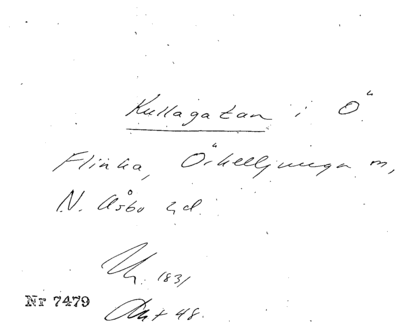 Kullagatan i Ö
Flinka, Örkelljunga m,
N. Åsbo hd.
1831
Nr 7479
Akt 48.